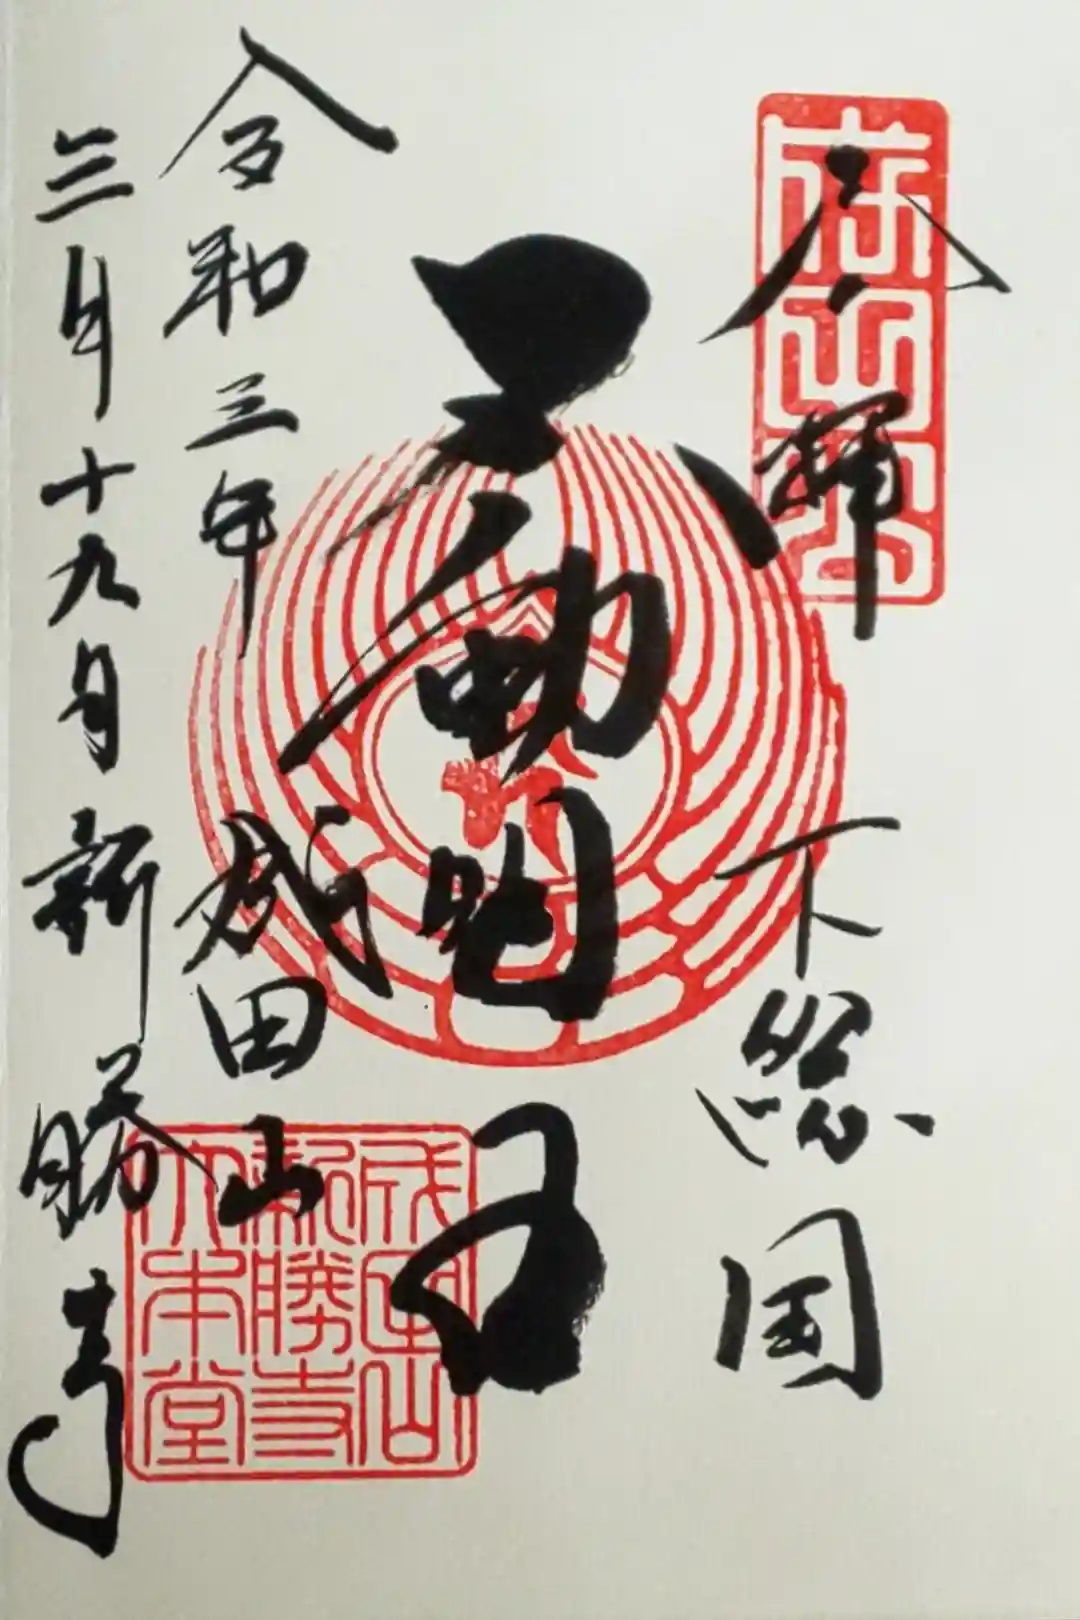 奉拝 下総国
不動明王
令和三年 成田山
三月十九日 新勝寺
成田山
新勝寺
大本堂